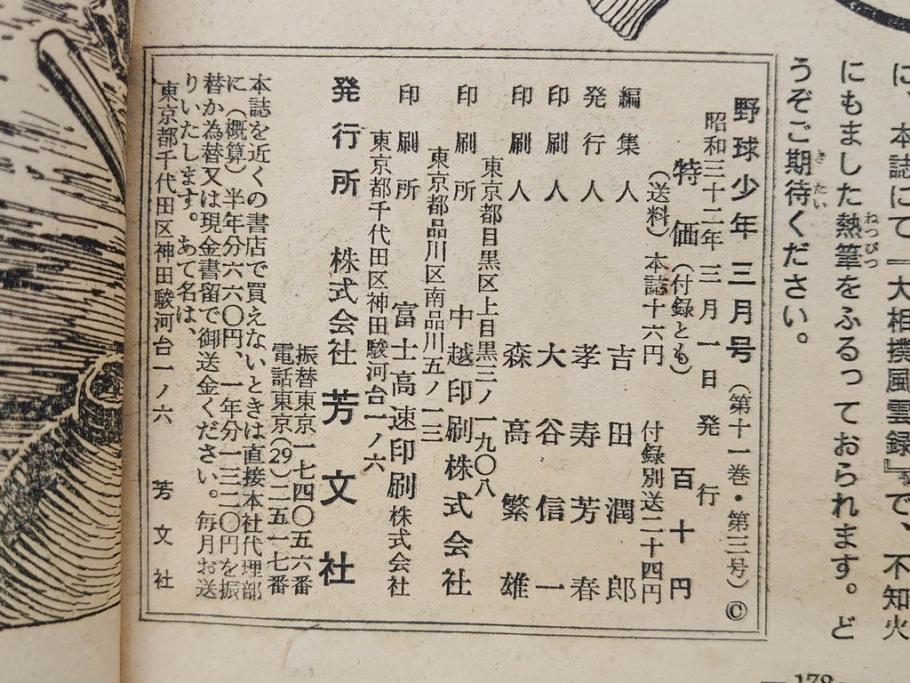 に、本誌にて『大相撲風雲録』で、不知火
にもました熱筆をふるっておられます。ど
うぞご期待ください。
野球少年 三月号（第十一巻・第三号）©
昭和三十二年三月一日発行
特価（付録とも）百十円
（送料）本誌十六円 付録別送二十四円
編集人 吉田潤郎
発行人 孝寿芳春
印刷人 大谷信一
印刷人 森高繁雄
東京都目黒区上目黒三ノ一九〇八
印刷所 中越印刷株式会社
東京都品川区南品川五ノ一三
印刷所 富士高速印刷株式会社
東京都千代田区神田駿河台一ノ六
発行所 株式会社 芳文社
振替東京一七四〇五六番
電話東京(29)二五一七番
本誌を近くの書店で買えないときは直接本社代理部
に（概算）半年分六六〇円、一年分一三二〇円を振
替か為替又は現金書留で御送金ください。毎月お送
りいたします。あて名は、
東京都千代田区神田駿河台一ノ六 芳文社
178